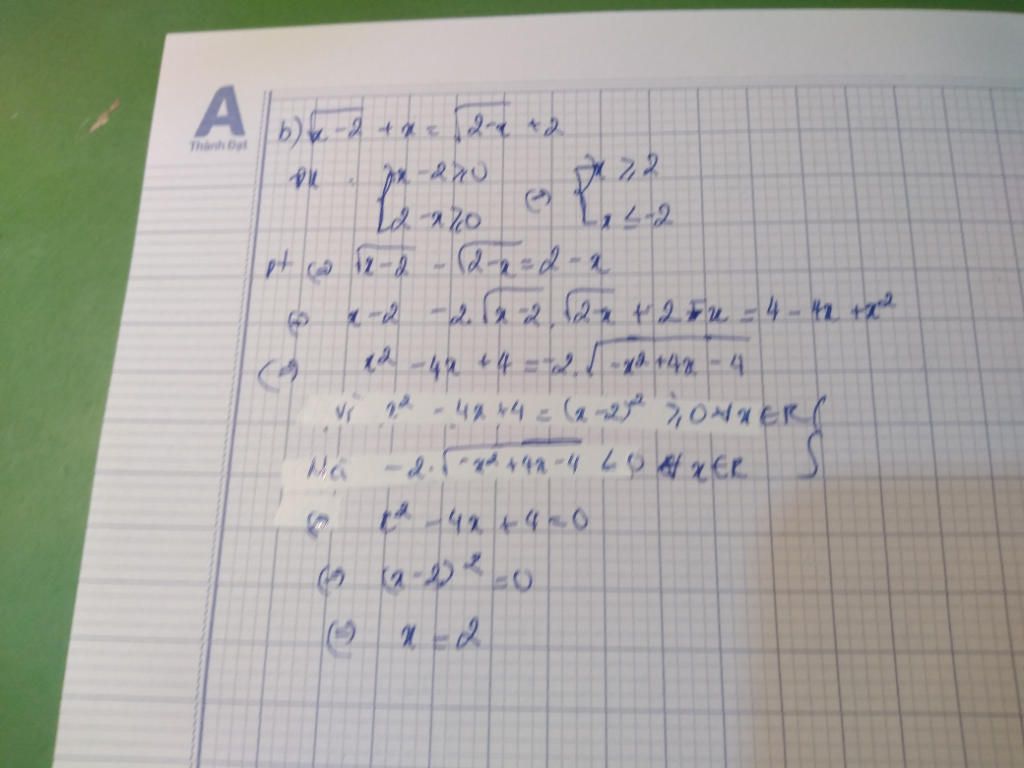 A
Thành Đạt
b) √x-2 + x = √2-x + 2
ĐK . { x - 2 ≥ 0 (=) { x ≥ 2
2 - x ≥ 0 x ≤ -2
pt (=) √x-2 - √2-x = 2 - x
(=) x - 2 - 2.√x-2 . √2-x + 2 - x = 4 - 4x + x²
(=) x² - 4x + 4 = -2.√-x²+4x-4
Vì x² - 4x + 4 = (x-2)² ≥ 0 ∀ x ∈ R }
Mà - 2.√-x²+4x-4 < 0 ∀ x ∈ R
(=) x² - 4x + 4 = 0
(=) (x-2)² = 0
(=) x = 2